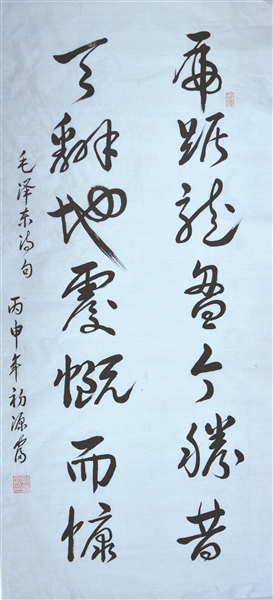 虎踞龙盘今勝昔
天翻地覆慨而慷
毛泽东诗句 丙申年初源